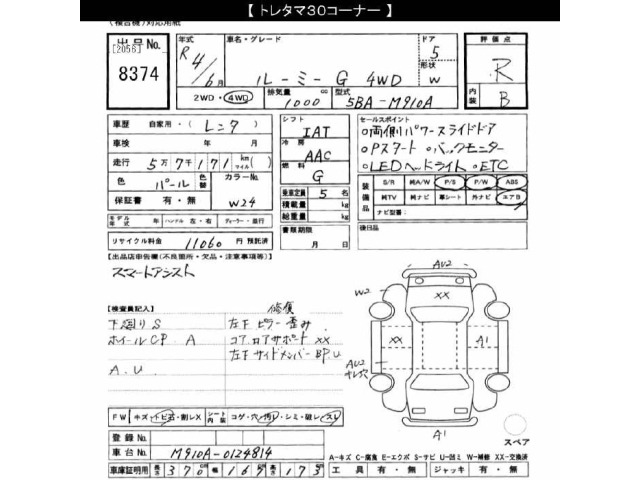 【 トレタマ30コーナー 】
(複合機)対応用紙
出品No.
[2056]
8374
年式
R4/6月
車名・グレード
ルーミー G 4WD
ドア
5
形状
W
2WD・4WD
排気量
1000 cc
型式
5BA-M910A
評価点
R
内装
B
車歴 自家用・(レンタ)
車検 年 月
走行 5万7千171 km(マイル)
色 パール 色替 カラーNo. W24
保証書 有・無
モデル年式 年 ハンドル 左・右 ディーラー・並行
リサイクル料金 11060 円 預託済
シフト
IAT
冷房
AAC
燃料
G
乗車定員 5 名
積載量 kg
総重量 kg
書類期限
月 日
セールスポイント
○両側パワースライドドア
○Pスタート ○バックモニター
○LEDヘッドライト ○ETC
装備品
S/R 純A/W P/S P/W ABS
純TV 純ナビ 革シート 外ナビ エアB
ナビ型番:
後日品
【出品店申告欄(不良箇所・欠品・注意事項等)】
スマートアシスト
【検査員記入】
修復
下廻り S 左フピラー歪み
ホイールCP A コアロアサポート XX
左フサイドメンバー BP.U
A.U
AU2
W2
XX
XX
A1
AU2
A1
スペア
FW キズ・トビ石・割レX シート内装 コゲ・穴・汚レ・シミ・破レ・スレ
登録No.
車台No. M910A-0124814
車庫証明用 長さ 370 cm 幅 167 cm 高さ 173 cm
A-キズ C-腐食 E-エクボ S-サビ U-凹ミ W-補修 XX-交換済
工具 有・無 ジャッキ 有・無